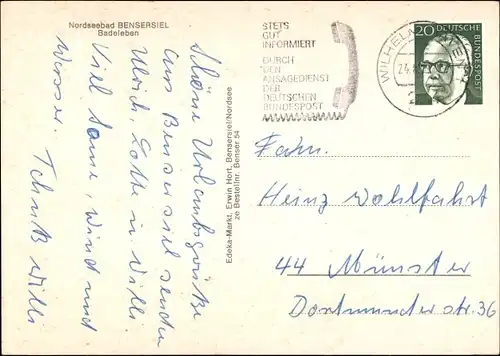 Nordseebad BENSERSIEL
Badeleben
STETS
GUT
INFORMIERT
DURCH
DEN
ANSAGEDIENST
DER
DEUTSCHEN
BUNDESPOST
WILHELM
24
2
20 DEUTSCHE
BUNDESPOST
Schöne Urlaubsgrüße
aus Bensersiel senden
Ulrich, Lotte u. Willi
Viel Sonne, Wind und
Wasser Tschüß Willi
Edeka-Markt, Erwin Hort, Bensersiel/Nordsee
ze Bestellnr. Benser 54
Fam.
Heinz Wohlfahrt
44 Münster
Dortmunder str. 36